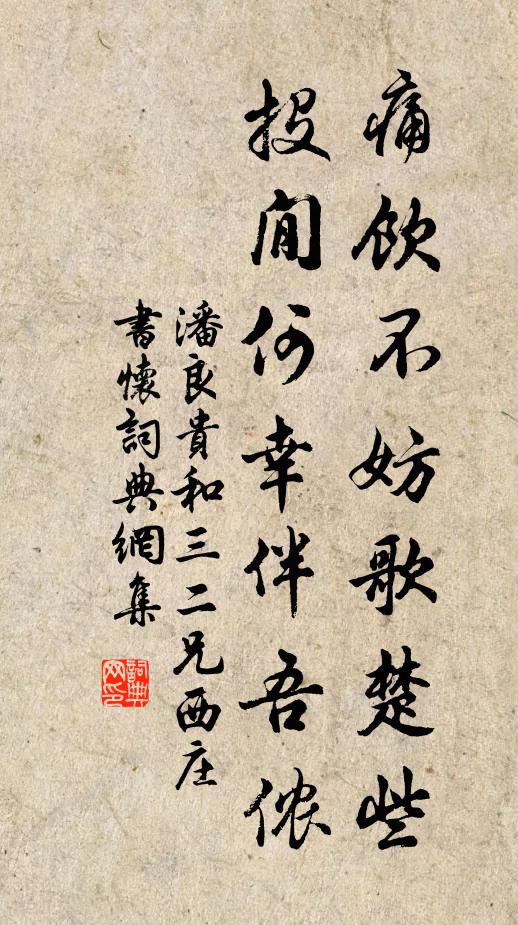 痛飲不妨歌楚些
投閒何幸伴吾儂
潘良貴和三二兄西庄
書懷詞典網集
詞典网印